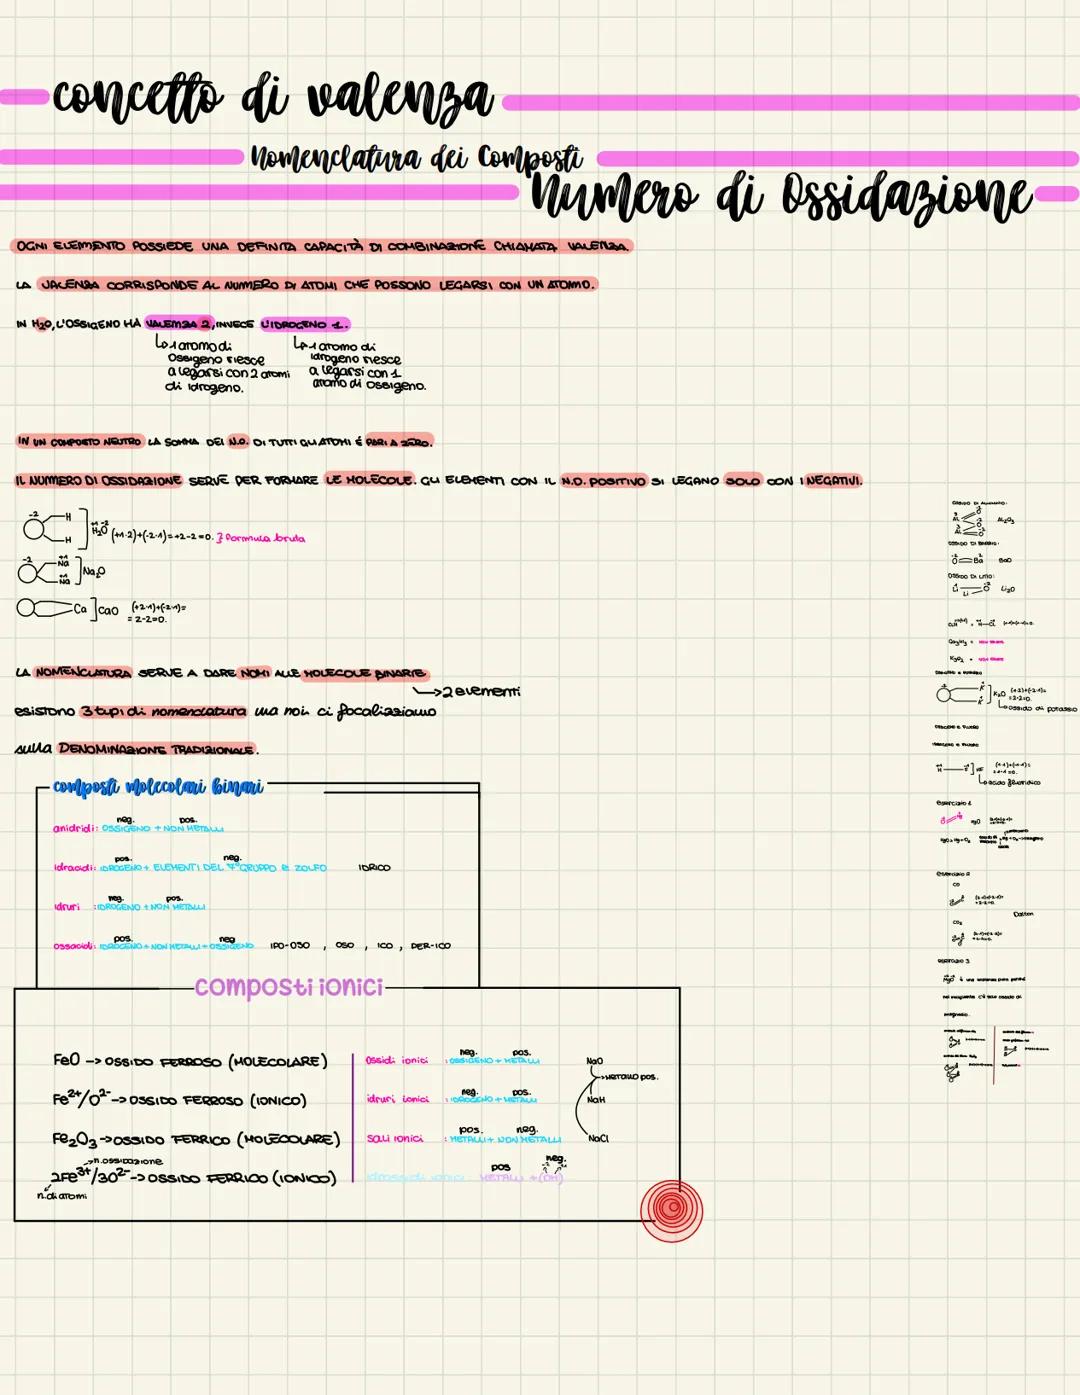 concetto di valenza
Nomenclatura dei Composti
Numero di Ossidazione
OGNI ELEMENTO POSSIEDE UNA DEFINITA CAPACITÀ DI COMBINAZIONE CHIAMATA VALENZA.
LA VALENZA CORRISPONDE AL NUMERO DI ATOMI CHE POSSONO LEGARSI CON UN ATOMO.
IN H2O, L'OSSIGENO HA VALENZA 2, INVECE L'IDROGENO 1.
1 atomo di
Ossigeno riesce
a legarsi con 2 atomi
di idrogeno.
1 atomo di
idrogeno riesce
a legarsi con 1
atomo di ossigeno.
IN UN COMPOSTO NEUTRO LA SOMMA DEI N.O. DI TUTTI GLI ATOMI É PARI A ZERO.
IL NUMERO DI OSSIDAZIONE SERVE PER FORMARE LE MOLECOLE. GLI ELEMENTI CON IL N.O. POSITIVO SI LEGANO SOLO CON I NEGATIVI.
-2 H H ] +1 -2 H2O (+1·2)+(-2·1)=+2-2=0. } Formula bruta
-2 +1 Na +1 Na ] Na2O
Ca ] CaO (+2·1)+(-2·1)=
= 2-2=0.
LA NOMENCLATURA SERVE A DARE NOMI ALLE MOLECOLE BINARIE
→2 elementi
esistono 3 tipi di nomenclatura ma noi ci focalizziamo
sulla DENOMINAZIONE TRADIZIONALE.
composti molecolari binari
neg. pos.
anidridi: OSSIGENO + NON METALLI
pos. neg.
idracidi: IDROGENO + ELEMENTI DEL 7° GRUPPO E ZOLFO IDRICO
neg. pos.
idruri :IDROGENO + NON METALLI
pos. neg
ossacidi: IDROGENO + NON METALLI + OSSIGENO IPO-OSO , OSO , ICO , PER-ICO
composti ionici
FeO -> OSSIDO FERROSO (MOLECOLARE)
Fe2+/O2- -> OSSIDO FERROSO (IONICO)
Fe2O3 -> OSSIDO FERRICO (MOLECOLARE)
→n.ossidazione
2Fe3+/3O2- -> OSSIDO FERRICO (IONICO)
n.di atomi
neg. pos.
Ossidi ionici :OSSIGENO + METALLI
neg. pos.
idruri ionici :IDROGENO + METALLI
pos. neg.
sali ionici : METALLI + NON METALLI
pos neg.
idrossidi ionici: METALLI + (OH)
NaO
→METALLO pos.
NaH
NaCl
OSSIDO DI ALLUMINIO:
Al2O3
OSSIDO DI BARIO:
O Ba BaO
OSSIDO DI LITIO:
Li Li O Li2O
K2O (+1·2)+(-2·1)=
=2-2=0.
ossido di potassio
acido fluoridico
esercizio 1
esercizio 2
CO
Dalton
CO2
esercizio 3